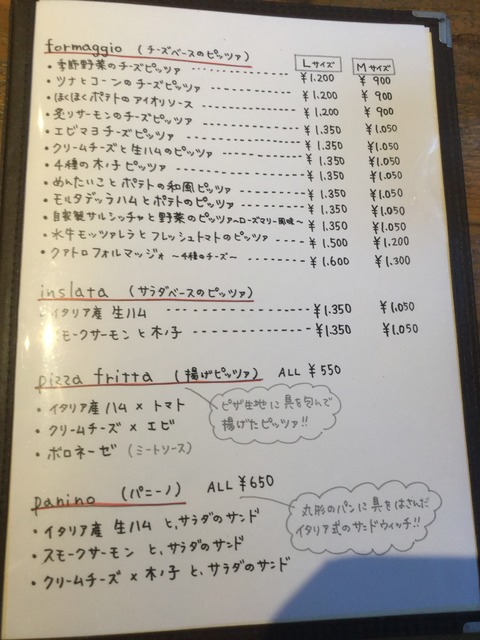 formaggio (チーズベースのピッツァ) Lサイズ Mサイズ
・季節野菜のチーズピッツァ ¥1.200 ¥900
・ツナとコーンのチーズピッツァ ¥1.200 ¥900
・ほくほくポテトのアイオリソース ¥1.200 ¥900
・炙りサーモンのチーズピッツァ ¥1.350 ¥1.050
・エビマヨチーズピッツァ ¥1.350 ¥1.050
・クリームチーズと生ハムのピッツァ ¥1.350 ¥1.050
・4種の木ノ子ピッツァ ¥1.350 ¥1.050
・めんたいことポテトの和風ピッツァ ¥1.350 ¥1.050
・モルタデッラハムとポテトのピッツァ ¥1.350 ¥1.050
・自家製サルシッチャと野菜のピッツァ〜ローズマリー風味〜 ¥1.350 ¥1.050
・水牛モッツァレラとフレッシュトマトのピッツァ ¥1.500 ¥1.200
・クァトロフォルマッジォ 〜4種のチーズ〜 ¥1.600 ¥1.300
inslata (サラダベースのピッツァ)
・イタリア産 生ハム ¥1.350 ¥1.050
モークサーモンと木ノ子 ¥1.350 ¥1.050
pizza fritta (揚げピッツァ) ALL ¥550
ピザ生地に具を包んで
揚げたピッツァ!!
・イタリア産ハム×トマト
・クリームチーズ×エビ
・ボロネーゼ (ミートソース)
panino (パニーノ) ALL ¥650
丸形のパンに具をはさんだ
イタリア式のサンドウィッチ!!
・イタリア産 生ハム と、サラダのサンド
・スモークサーモン と、サラダのサンド
・クリームチーズ×木ノ子 と、サラダのサンド